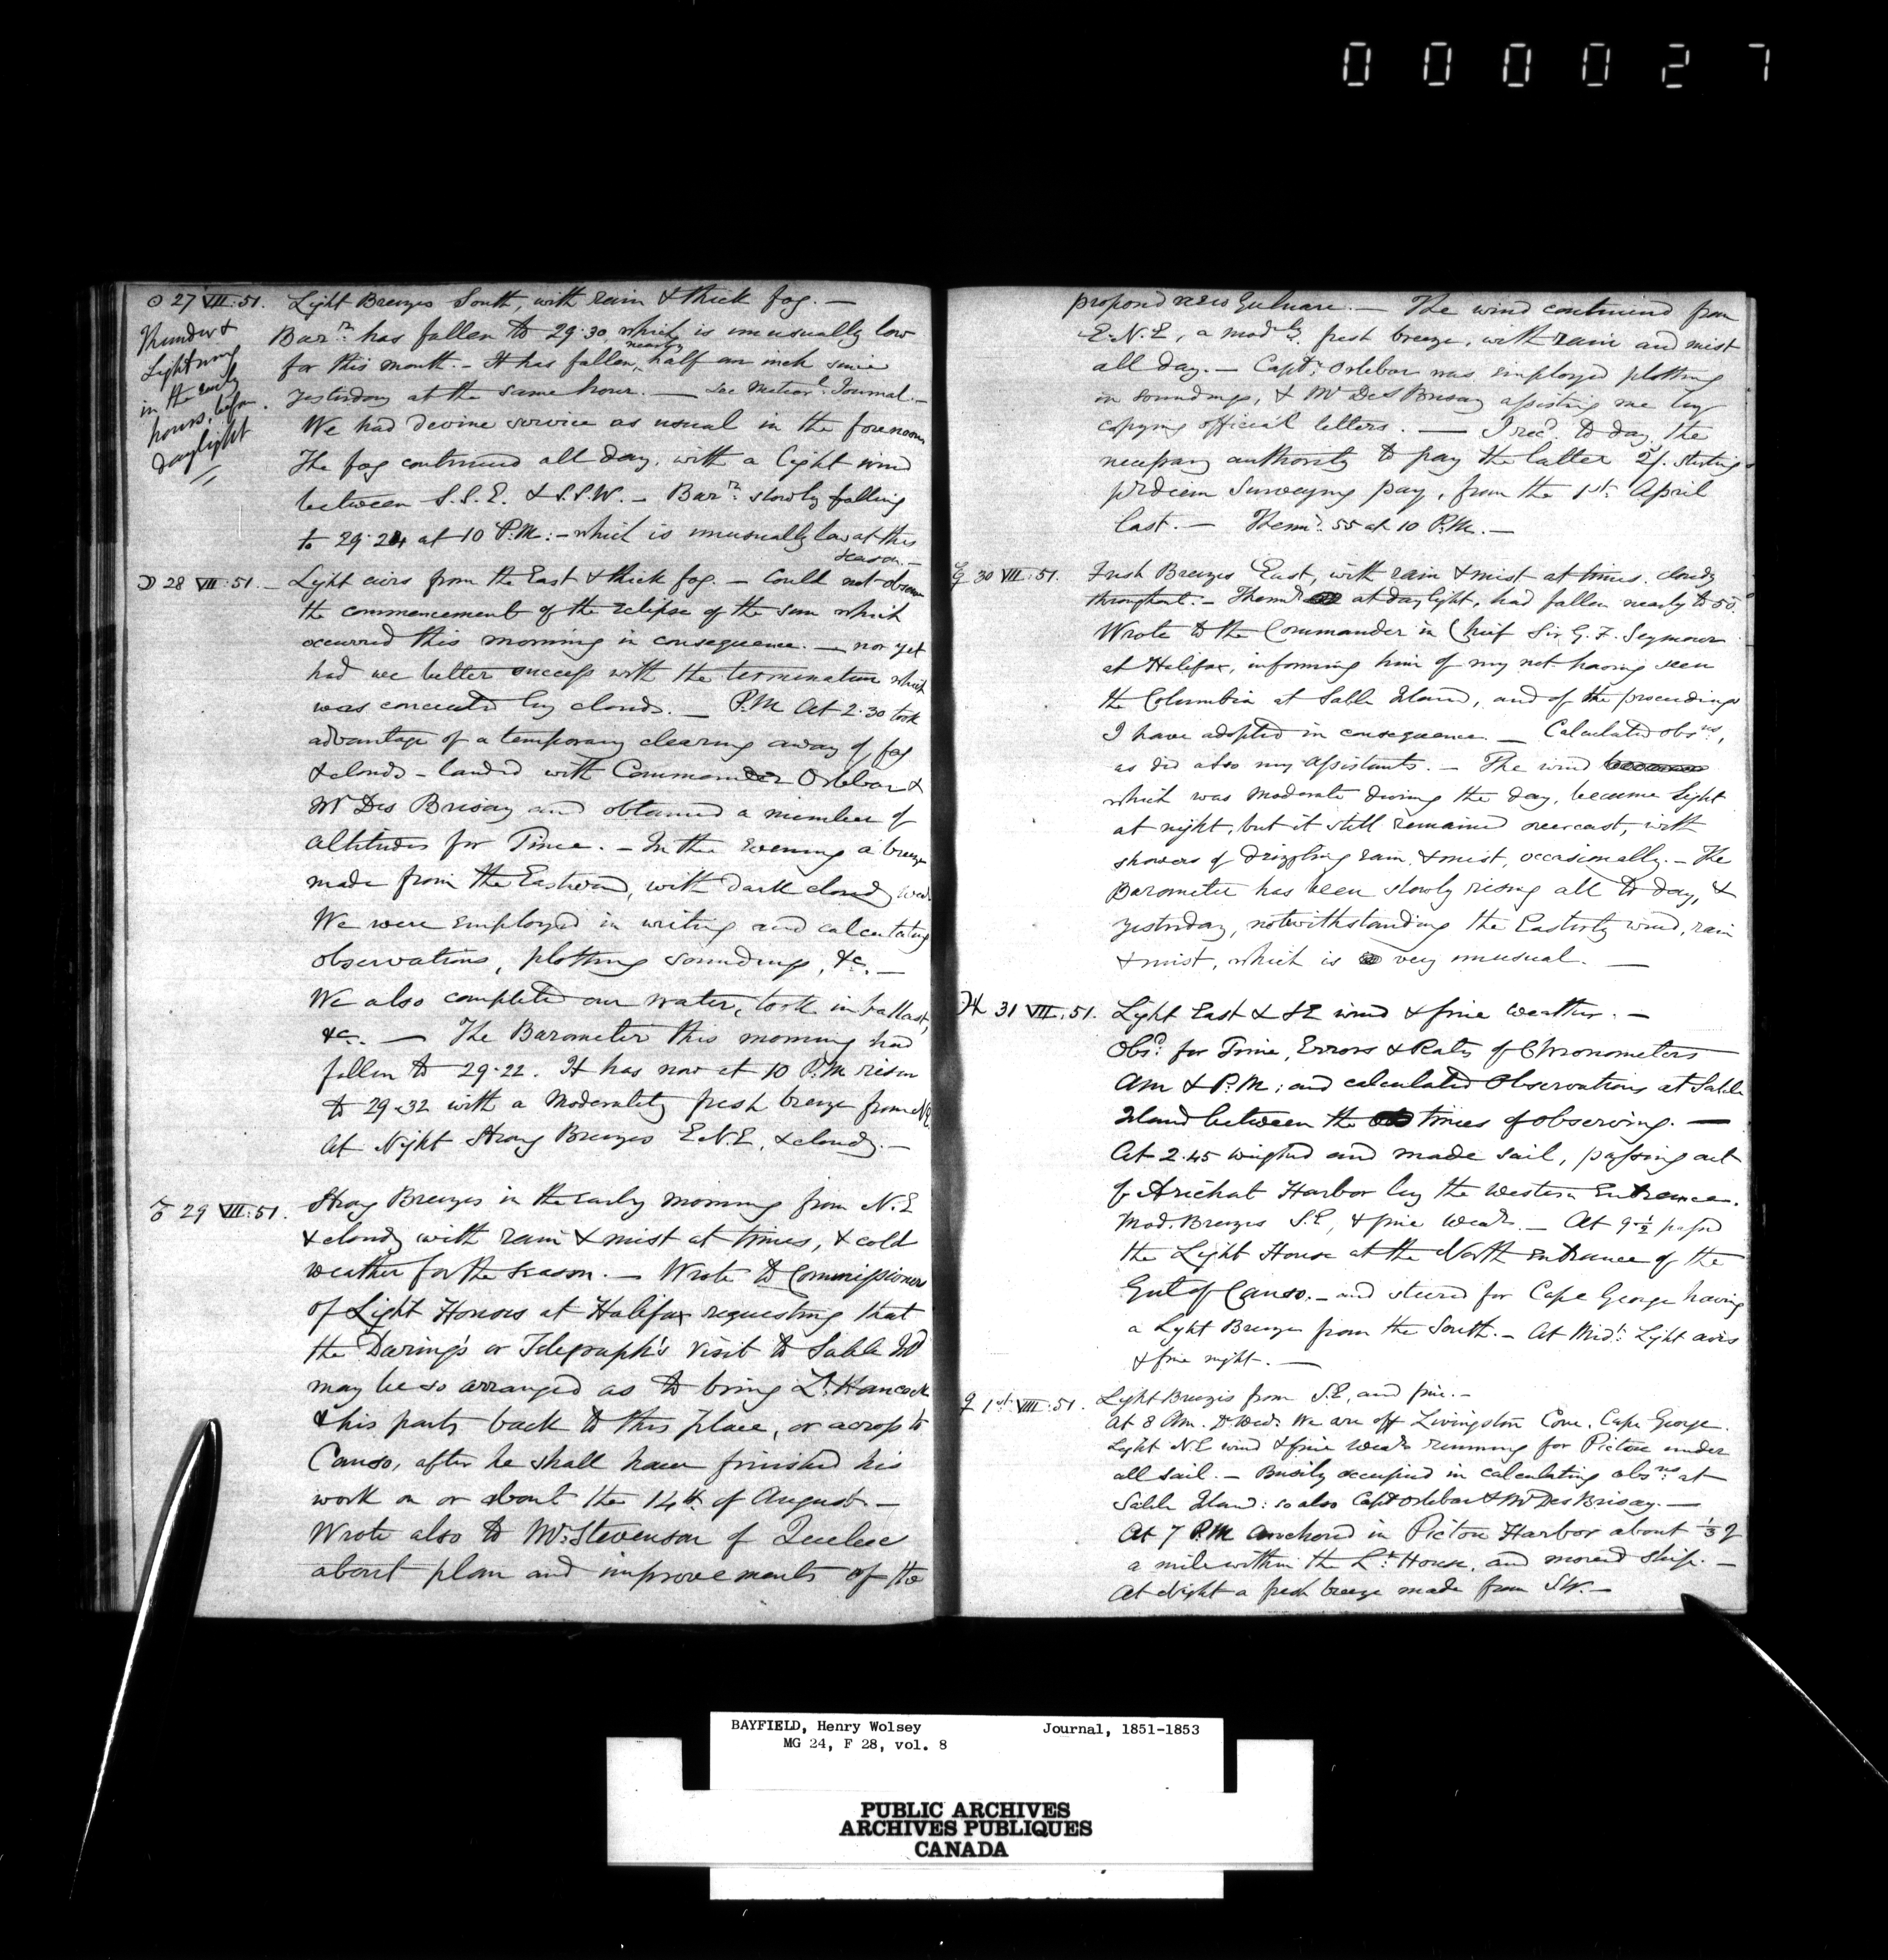 000027
☉ 27 VII:51. Light Breezes South, with rain & thick fog. —
Thunder &
Lightning
in the early
hours, before
daylight
Barr. has fallen to 29.30 which is unusually low
for this month. - It has fallen, nearly half an inch since
yesterday at the same hour. — See Meteorl. Journal. -
We had devine service as usual in the forenoon
The fog continued all day, with a light wind
between S.S.E. & S.S.W. - Barr. slowly falling
to 29.24 at 10 P.M: - which is unusually low at this
season. -
☽ 28 VII:51. - Light airs from the East & thick fog. - Could not observe
the commencement of the eclipse of the sun which
occurred this morning in consequence. — nor yet
had we better success with the termination which
was concealed by clouds. — P.M At 2.30 took
advantage of a temporary clearing away of fog
& clouds - landed with Commander Orlebar &
Mr Des Brisay and obtained a number of
altitudes for Time. - In the evening a breeze
made from the Eastward, with dark cloudy wear
We were employed in writing and calculating
observations, plotting soundings, &c. —
We also completed our water, took in ballast,
&c. — The Barometer this morning had
fallen to 29.22. It has now at 10 P.M risen
to 29.32 with a moderately fresh breeze from NE.
At Night Strong Breezes E.N.E, & cloudy. -
♂ 29 VII:51. Strong Breezes in the early morning from N.E
& cloudy with rain & mist at times, & cold
weather for the season. — Wrote to Commissioners
of Light Houses at Halifax requesting that
the Daring's or Telegraph's visit to Sable Id
may be so arranged as to bring Lt. Hancock
& his party back to this place, or across to
Canso, after he shall have finished his
work on or about the 14th of August -
Wrote also to Mr. Stevenson of Quebec
about plan and improvements of the
proposd new Gulnare. — The wind continued from
E.N.E, a modly. fresh breeze, with rain and mist
all day. - Captn. Orlebar was employed plotting
in soundings, & Mr Des Brisay assisting me by
copying official letters. — I recd. to day, the
necessary authority to pay the latter 2/. sterling
pr diem Surveying pay, from the 1st. April
last. - Themr. 55 at 10 P.M. -
☿ 30 VII:51. Fresh Breezes East, with rain & mist at times. cloudy
throughout. - Themr at daylight, had fallen nearly to 50.
Wrote to the Commander in Chief Sir G. F. Seymour
at Halifax, informing him of my not having seen
the Columbia at Sable Island, and of the proceedings
I have adopted in consequence. — Calculated obsns,
as did also my assistants. - The wind
which was moderate during the day, became light
at night, but it still remained overcast, with
showers of drizzling rain & mist, occasionally. - The
Barometer has been slowly rising all to day, &
yesterday, notwithstanding the Easterly wind, rain
& mist, which is very unusual. —
♃ 31 VII:51. Light East & SE wind & fine weather. -
Obsd. for Time, Errors & Rates of Chronometers
AM & P.M; and calculated observations at Sable
Island between the times of observing. —
At 2.45 weighed and made sail, passing out
of Arichat Harbor by the Western Entrance.
Mod. Breezes S.E, & fine wear. - At 9 ½ passed
the Light House at the North entrance of the
Gut of Canso. - and steered for Cape George having
a Light Breeze from the South. - At Midt. Light airs
& fine night. —
♀ 1st. VIII:51. Light Breezes from S.E, and fine. -
At 8 AM. We are off Livingston Cove, Cape George.
Light N.E wind & fine wear running for Pictou under
all sail. - Busily occupied in calculating obsns. at
Sable Island: so also Capt Orlebar & Mr Des Brisay. —
At 7 P.M anchored in Pictou Harbor about ⅓ of
a mile within the Lt. House, and moored ship. -
At Night a fresh breeze made from SW. -
BAYFIELD, Henry Wolsey Journal, 1851-1853
MG 24, F 28, vol. 8
PUBLIC ARCHIVES
ARCHIVES PUBLIQUES
CANADA